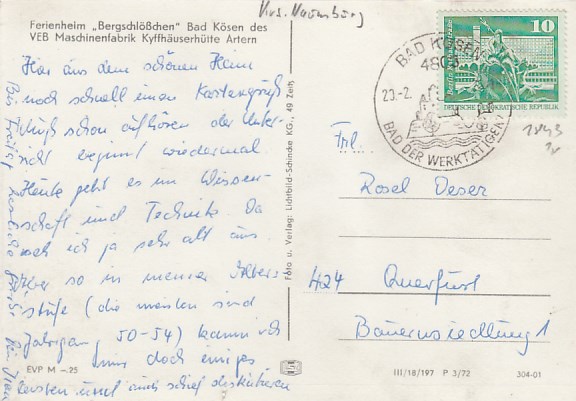 Krs. Naumburg
Ferienheim „Bergschlößchen" Bad Kösen des
VEB Maschinenfabrik Kyffhäuserhütte Artern
Hier aus dem schönen Heim
noch schnell einen Kartengruß
Muß schon aufhören der Unter-
richt beginnt wiedermal
Heute geht es im Wissen-
schaft und Technik Da
ich ja sehr alt aus
Aber so in meiner Alters-
stufe (die meisten sind
Jahrgang 50-54) kann ich
uns doch einiges
leisten und auch diskutieren
Bis Freitag
EVP M –.25
Foto u. Verlag: Lichtbild-Schincke KG., 49 Zeitz
BAD KÖSEN
4803
23.-2.
BAD DER WERKTÄTIGEN
10
DEUTSCHE DEMOKRATISCHE REPUBLIK
1843
Frl.
Rosel Deser
424 Querfurt
Bauernsiedlung 1
III/18/197 P 3/72 304-01